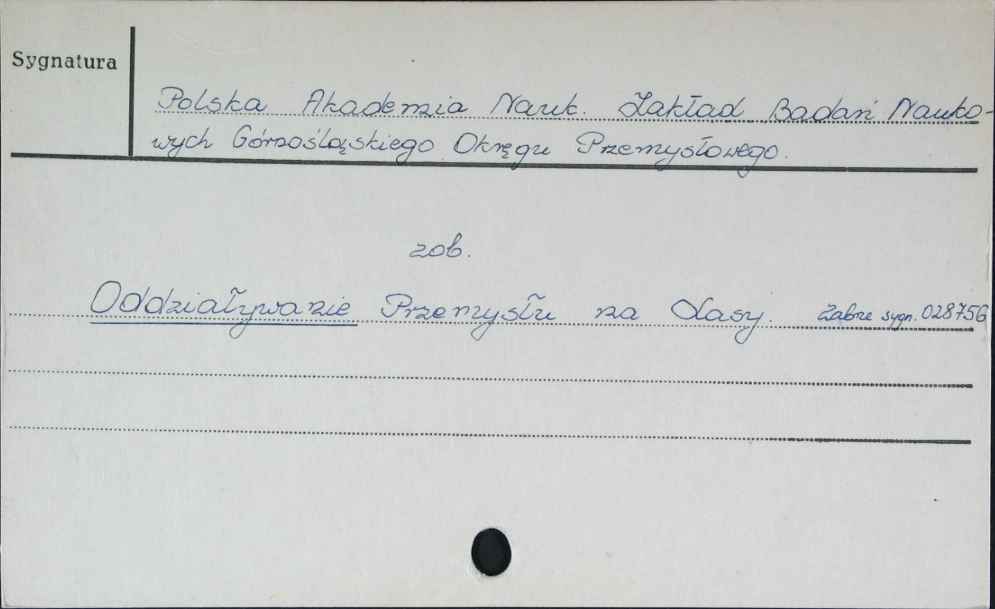 Sygnatura
Polska Akademia Nauk. Zakład Badań Nauko-
wych Górnośląskiego Okręgu Przemysłowego.
zob.
Oddziaływanie Przemysłu na Lasy. Zabrze sygn. 028756